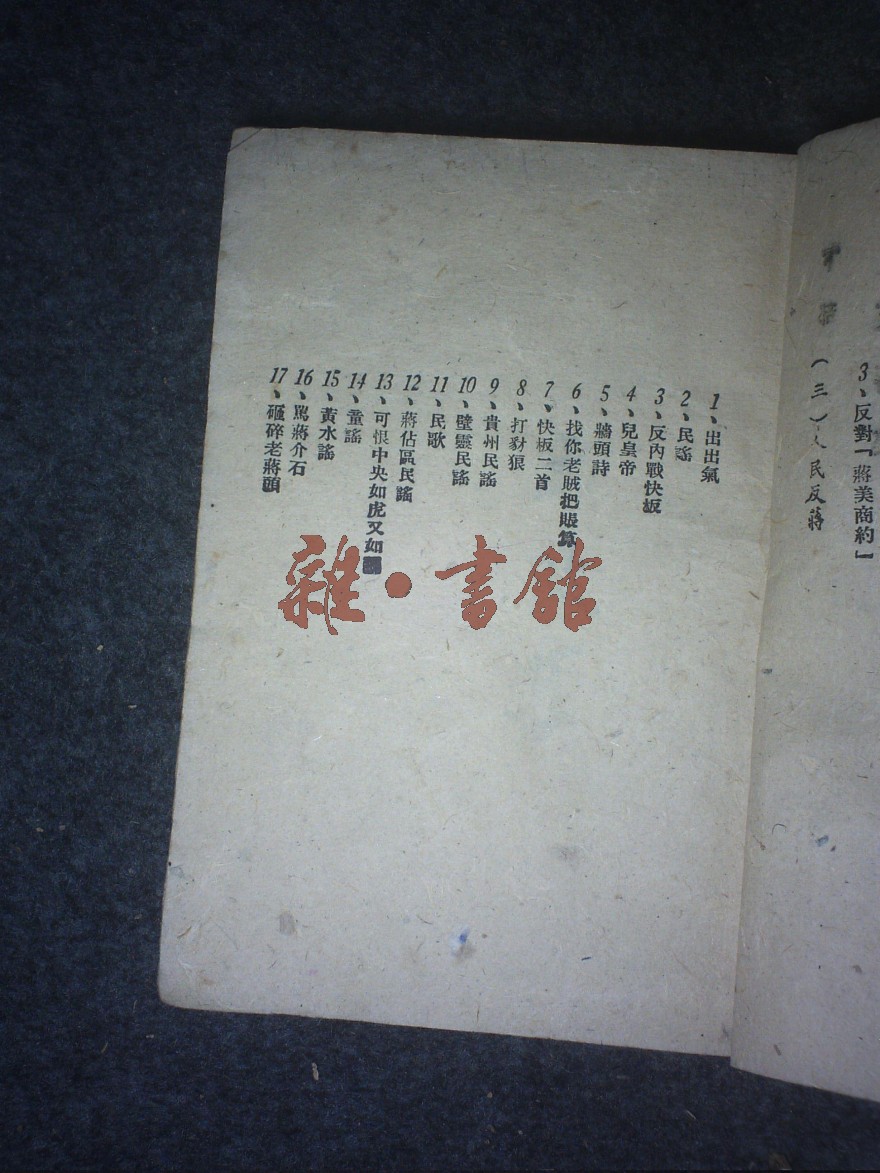 3、反對「蔣美商約」
(三)人民反蔣
1、出出氣
2、民謠
3、反內戰快板
4、兒皇帝
5、牆頭詩
6、找你老賊把賬算
7、快板二首
8、打豺狼
9、貴州民謠
10、壁靈民謠
11、民歌
12、蔣佔區民謠
13、可恨中央如虎又如
14、童謠
15、黃水謠
16、罵蔣介石
17、砸碎老蔣頭
雜·書館